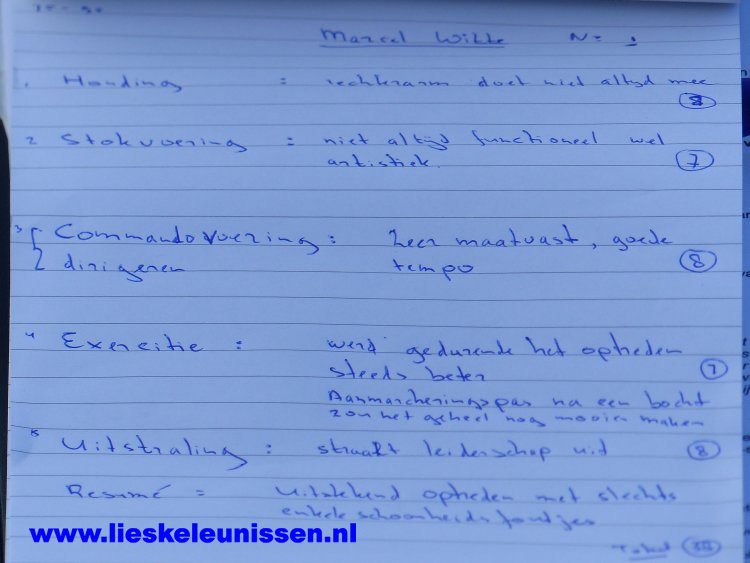 Marcel Wilke N=
1. Houding = rechterarm doet niet altijd mee
2 Stokvoering = niet altijd functioneel wel
artistiek. 7
3 Commandovoering: Zeer maatvast, goede
dirigeren tempo 8
4 Exercitie : werd gedurende het optreden
steeds beter 7
Aanmarcheringspas na een bocht
zou het geheel nog mooier maken
5 Uitstraling : straalt leiderschap uit 8
Resumé = Uitstekend optreden met slechts
enkele schoonheidsfoutjes
www.lieskeleunissen.nl
Totaal